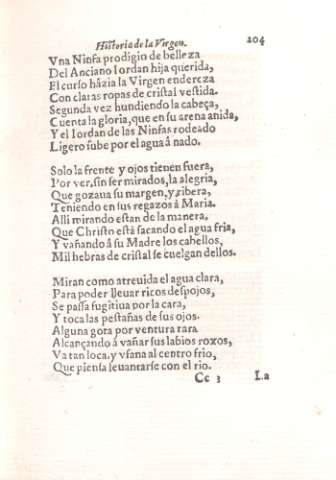 Historia de la Virgen. 204
Vna Ninfa prodigio de belleza
Del Anciano Iordan hija querida,
El curso házia la Virgen endereza
Con claras ropas de cristal vestida.
Segunda vez hundiendo la cabeça,
Cuenta la gloria, que en su arena anida,
Y el Iordan de las Ninfas rodeado
Ligero sube por el agua á nado.
Solo la frente y ojos tienen fuera,
Por ver, sin ser mirados, la alegria,
Que gozaua su margen, y ribera,
Teniendo en sus regazos á Maria.
Alli mirando estan de la manera,
Que Christo està sacando el agua fria,
Y vañando á su Madre los cabellos,
Mil hebras de cristal se cuelgan dellos.
Miran como atreuida el agua clara,
Para poder lleuar ricos despojos,
Se passa fugitiua por la cara,
Y toca las pestañas de sus ojos.
Alguna gota por ventura rara
Alcançando á vañar sus labios roxos,
Va tan loca, y vfana al centro frio,
Que piensa leuantarse con el rio.
Cc 3 La